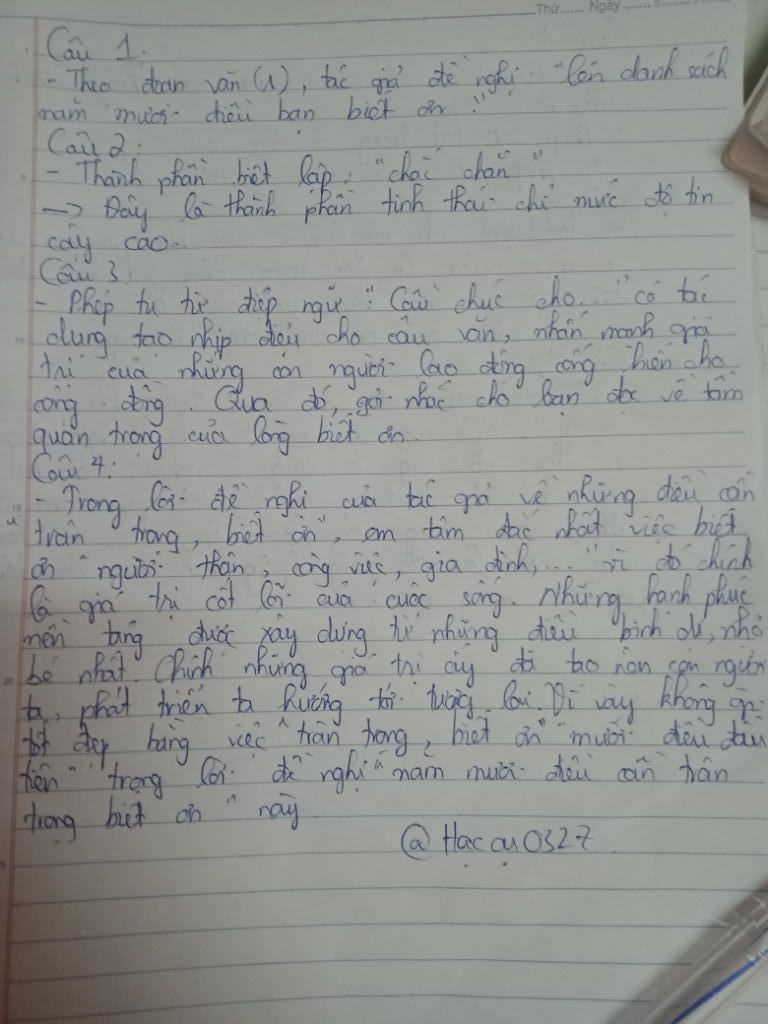 Thứ...... Ngày............
Câu 1.
- Theo đoạn văn (1), tác giả đề nghị "lên danh sách
năm mươi điều bạn biết ơn."
Câu 2:
- Thành phần biệt lập: "chắc chắn"
→ Đây là thành phần tình thái chỉ mức độ tin
cậy cao.
Câu 3:
- Phép tu từ điệp ngữ: "Cầu chúc cho..." có tác
dụng tạo nhịp điệu cho câu văn, nhấn mạnh giá
trị của những con người lao động cống hiến cho
cộng đồng. Qua đó, gợi nhắc cho bạn đọc về tầm
quan trọng của lòng biết ơn.
Câu 4:
- Trong lời đề nghị của tác giả về những điều cần
trân trọng, biết ơn", em tâm đắc nhất việc biết
ơn "người thân, công việc, gia đình,..." vì đó chính
là giá trị cốt lõi của cuộc sống. Những hạnh phúc
nền tảng được xây dựng từ những điều bình dị, nhỏ
bé nhất. Chính những giá trị ấy đã tạo nên con người
ta, phát triển ta hướng tới tương lai. Vì vậy không gì
tốt đẹp bằng việc "trân trọng, biết ơn" mười điều đầu
tiên" trong lời đề nghị "năm mươi điều cần trân
trọng biết ơn" này
@Hạcạu0327